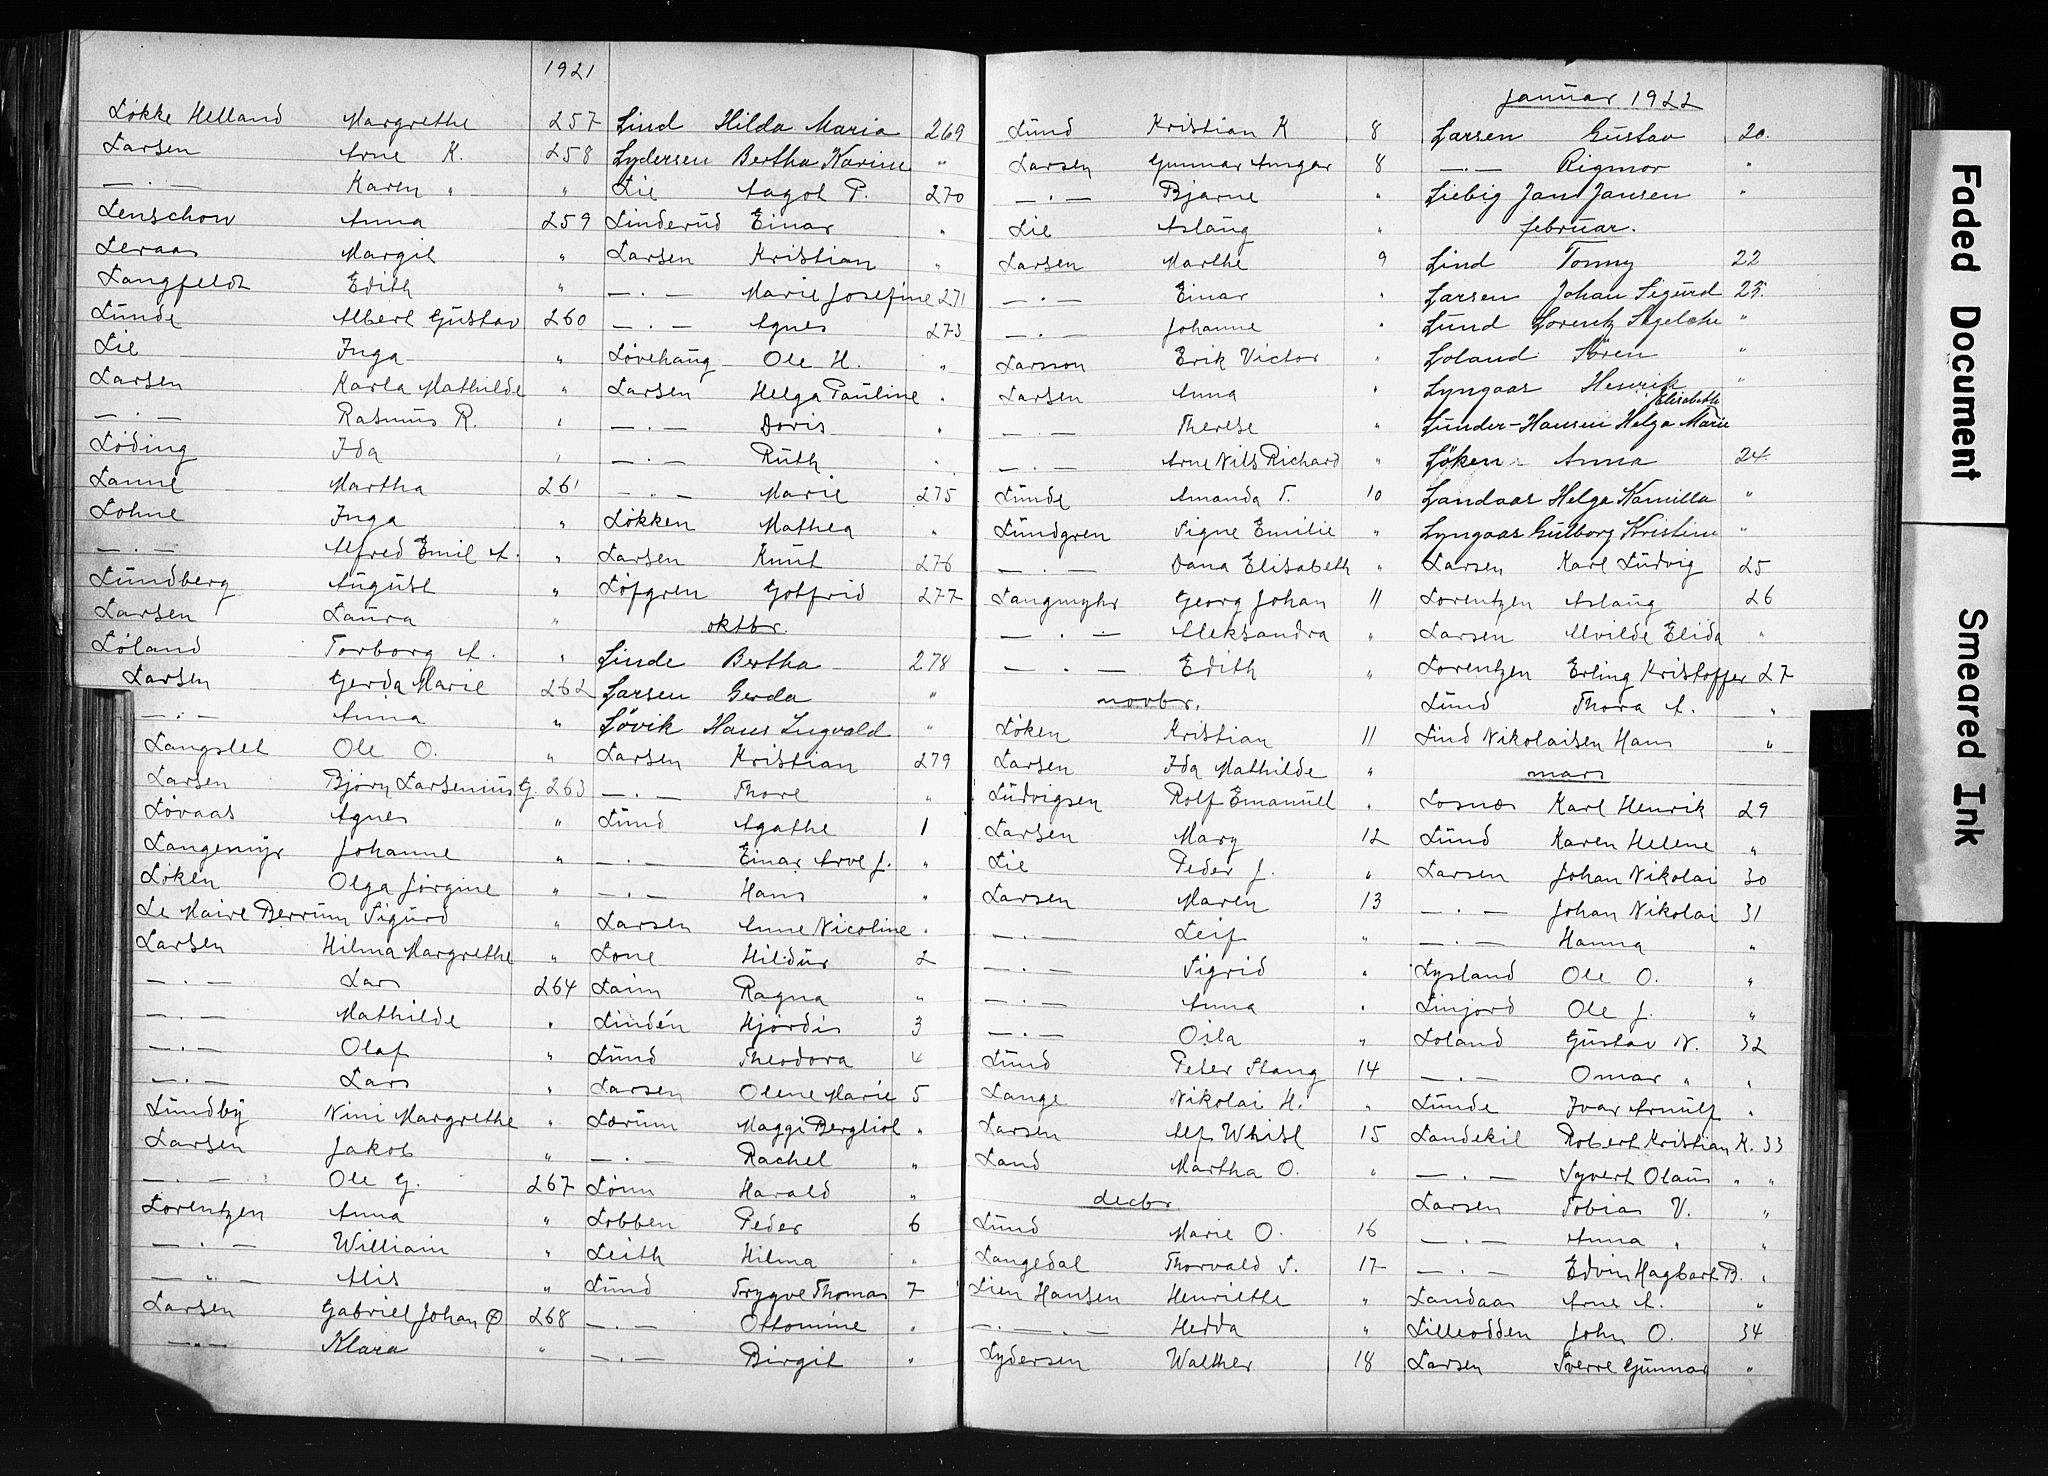 1921
Løkke Helland Margrethe 257
Larsen Arne K. 258
—·— Karen " "
Lenschow Anna 259
Leraas Margit "
Langfeldt Edith "
Lunde Albert Gustav 260
Lie Inga "
Larsen Karla Mathilde "
—·— Rasmus R. "
Løding Ida "
Lanne Martha 261
Lohne Inga "
—·— Alfred Emil A. "
Lundberg August "
Larsen Laura "
Løland Torborg A. "
Larsen Gerda Marie 262
—·— Anna "
Langslet Ole O. "
Larsen Bjørn Larsenius G. 263
Løvaas Agnes "
Langemyr Johanne "
Løken Olga Jørgine "
Le Maire Berrum Sigurd "
Larsen Hilma Margrethe "
—·— Lars 264
—·— Mathilde "
—·— Olaf "
—·— Lars "
Lundby Nini Margrethe "
Larsen Jakob "
—·— Ole G. 267
Lorentzen Anna "
—·— William "
—"— Alis "
Larsen Gabriel Johan Ø 268
—"— Klara "
Lind Hilda Maria 269
Lydersen Bertha Karine "
Lie Aagot P. 270
Linderud Einar "
Larsen Kristian "
—·— Marie Josefine 271
—·— Agnes 273
Løvehaug Ole H. "
Larsen Helga Pauline "
—·— Doris "
—·— Ruth "
—·— Marie 275
Løkken Mathea "
Larsen Knut 276
Løfgren Gotfrid 277
oktbr.
Linde Bertha 278
Larsen Gerda "
Løvik Hans Ingvald "
Larsen Kristian 279
—·— Thore "
Lund Agathe 1
—·— Einar Arve J. "
—·— Hans "
Larsen Anne Nicoline "
Lone Hildur 2
Laim Ragna "
Lindén Hjørdis 3
Lund Theodora 4
Larsen Olene Marie 5
Lærum Maggi Bergliot "
—·— Rachel "
Lønn Harald "
Lobben Peder 6
Leith Hilma "
Lund Trygve Thomas 7
—·— Ottomine "
—·— Birgit "
Lund Kristian K 8
Larsen Gunnar Amgar 8
—·— Bjarne "
Lie Aslaug "
Larsen Marthe 9
—·— Einar "
—·— Johanne "
Larsson Erik Victor "
Larsen Anna "
—·— Therese "
—·— Arne Nils Richard "
Lunde Amanda T. 10
Lundgren Signe Emilie "
—·— Dana Elisabeth "
Langmyhr Georg Johan 11
—·— Aleksandra "
—·— Edith "
novbr.
Løken Kristian 11
Larsen Ida Mathilde "
Ludvigsen Rolf Emanuel "
Larsen Mary 12
Lie Peder J. "
Larsen Maren 13
—·— Leif "
—·— Sigrid "
—·— Anna "
—·— Osla "
Lund Peter Stang 14
Lange Nikolai H. "
Larsen Alf Whist 15
Land Martha O. "
decbr
Lund Marie O. 16
Langedal Thorvald S. 17
Lien Hansen Henriette "
—·—·— Hedda "
Lydersen Walther 18
januar 1922
Larsen Gustav 20.
—·— Rigmor "
Liebig Jand Jansen "
februar.
Lind Tonny 22
Larsen Johan Sigurd 23.
Lund Lorentz Segelcke "
Loland Sören "
Lyngaas Henrik "
Lunder-Hansen Helga Marie Elisabeth
Løken Anna 24.
Landaas Helga Kamilla "
Lyngaas Gulborg Kristine "
Larsen Karl Ludvig 25
Lorentzen Aslaug 26
Larsen Alvilde Elida "
Lorentzen Erling Kristoffer 27
Lund Thora A. "
Lind Nikolaisen Hans "
mars
Losnæs Karl Henrik 29
Lund Karen Helene "
Larsen Johan Nikolai 30
—·— Johan Nikolai 31
—·— Hanna "
Lysland Ole O. "
Linjord Ole J. "
Loland Gustav N. 32
—·— Omar " "
Lunde Ivar Arnulf "
Landekil Robert Kristian K. 33
—·— Syvert Olaus " "
Larsen Tobias V. "
—·— Anna " "
—·— Edvin Hagbart B. "
Landaas Arne A. "
Lilleodden John O. 34
Larsen Sverre Gunnar "
Faded Document
Smeared Ink